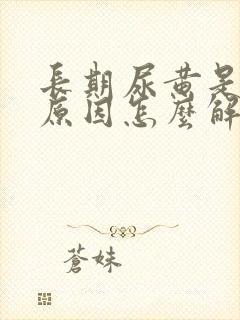 長期尿黄是
原因怎麼解
蒼妹